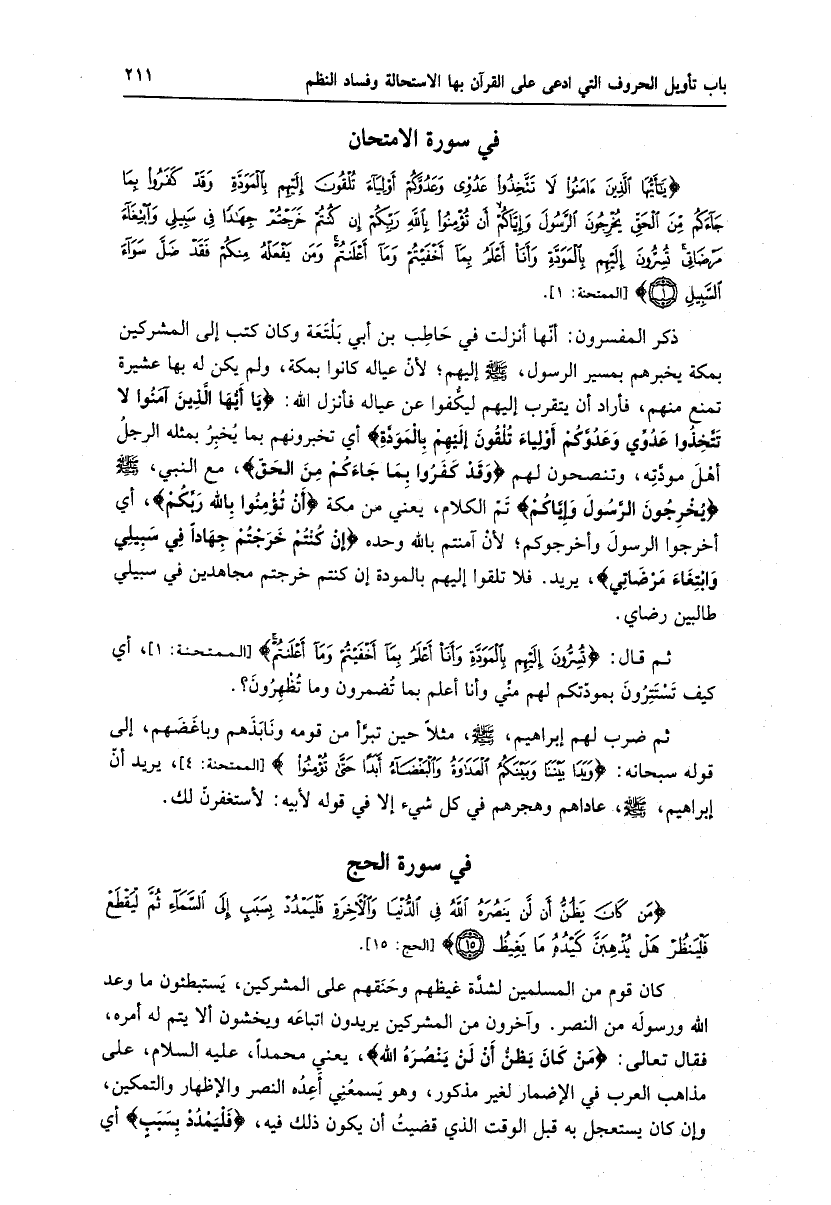 باب تأويل الحروف التي ادعى على القرآن بها الاستحالة وفساد النظم ٢١١
في سورة الامتحان
﴿يَٰٓأَيُّهَا ٱلَّذِينَ ءَامَنُوا۟ لَا تَتَّخِذُوا۟ عَدُوِّى وَعَدُوَّكُمْ أَوْلِيَآءَ تُلْقُونَ إِلَيْهِم بِٱلْمَوَدَّةِ وَقَدْ كَفَرُوا۟ بِمَا
جَآءَكُم مِّنَ ٱلْحَقِّ يُخْرِجُونَ ٱلرَّسُولَ وَإِيَّاكُمْ ۙ أَن تُؤْمِنُوا۟ بِٱللَّهِ رَبِّكُمْ إِن كُنتُمْ خَرَجْتُمْ جِهَٰدًا فِى سَبِيلِى وَٱبْتِغَآءَ
مَرْضَاتِى ۚ تُسِرُّونَ إِلَيْهِم بِٱلْمَوَدَّةِ وَأَنَا۠ أَعْلَمُ بِمَآ أَخْفَيْتُمْ وَمَآ أَعْلَنتُمْ ۚ وَمَن يَفْعَلْهُ مِنكُمْ فَقَدْ ضَلَّ سَوَآءَ
ٱلسَّبِيلِ ١﴾ [الممتحنة: ١].
ذكر المفسرون: أنّها أنزلت في حَاطِب بن أبي بَلْتَعَة وكان كتب إلى المشركين
بمكة يخبرهم بمسير الرسول، ﷺ إليهم؛ لأنّ عياله كانوا بمكة، ولم يكن له بها عشيرة
تمنع منهم، فأراد أن يتقرب إليهم ليكُفوا عن عياله فأنزل الله: ﴿يَا أَيُّهَا الَّذِينَ آمَنُوا لا
تَتَّخِذُوا عَدُوِّي وَعَدُوَّكُمْ أَوْلِيَاءَ تُلْقُونَ إِلَيْهِمْ بِالْمَوَدَّةِ﴾ أي تخبرونهم بما يُخبِرُ بمثله الرجلُ
أهلَ مودّتِه، وتنصحون لهم ﴿وَقَدْ كَفَرُوا بِمَا جَاءَكُمْ مِنَ الحَقّ﴾، مع النبي، ﷺ
﴿يُخْرِجُونَ الرَّسُولَ وَإِيَّاكُمْ﴾ تَمّ الكلام، يعني من مكة ﴿أَنْ تُؤْمِنُوا بِالله رَبِّكُمْ﴾، أي
أخرجوا الرسولَ وأخرجوكم؛ لأنْ آمنتم بالله وحده ﴿إِنْ كُنْتُمْ خَرَجْتُمْ جِهَاداً فِي سَبِيلِي
وَابْتِغَاءَ مَرْضَاتِي﴾، يريد. فلا تلقوا إليهم بالمودة إن كنتم خرجتم مجاهدين في سبيلي
طالبين رضاي.
ثم قال: ﴿تُسِرُّونَ إِلَيْهِم بِٱلْمَوَدَّةِ وَأَنَا۠ أَعْلَمُ بِمَآ أَخْفَيْتُمْ وَمَآ أَعْلَنتُمْ ۚ﴾ [الممتحنة: ١]، أي
كيف تَسْتَتِرُونَ بمودّتكم لهم منّي وأنا أعلم بما تُضمرون وما تُظهِرُونَ؟.
ثم ضرب لهم إبراهيم، ﷺ، مثلاً حين تبرَّأ من قومه ونَابَذَهم وباغَضَهم، إلى
قوله سبحانه: ﴿وَبَدَا بَيْنَنَا وَبَيْنَكُمُ ٱلْعَدَٰوَةُ وَٱلْبَغْضَآءُ أَبَدًا حَتَّىٰ تُؤْمِنُوا۟﴾ [الممتحنة: ٤]، يريد أنّ
إبراهيم، ﷺ، عاداهم وهجرهم في كل شيء إلا في قوله لأبيه: لأستغفرنّ لك.
في سورة الحج
﴿مَن كَانَ يَظُنُّ أَن لَّن يَنصُرَهُ ٱللَّهُ فِى ٱلدُّنْيَا وَٱلْـَٔاخِرَةِ فَلْيَمْدُدْ بِسَبَبٍ إِلَى ٱلسَّمَآءِ ثُمَّ لْيَقْطَعْ
فَلْيَنظُرْ هَلْ يُذْهِبَنَّ كَيْدُهُۥ مَا يَغِيظُ ١٥﴾ [الحج: ١٥].
كان قوم من المسلمين لشدَّة غيظهم وحَنَقهم على المشركين، يَستبطئون ما وعد
الله ورسولَه من النصر. وآخرون من المشركين يريدون اتباعَه ويخشون ألا يتم له أمره،
فقال تعالى: ﴿مَنْ كَانَ يَظُنُّ أَنْ لَنْ يَنْصُرَهُ الله﴾، يعني محمداً، عليه السلام، على
مذاهب العرب في الإضمار لغير مذكور، وهو يَسمعُنِي أَعِدُه النصر والإظهار والتمكين،
وإن كان يستعجل به قبل الوقت الذي قضيتُ أن يكون ذلك فيه، ﴿فَلْيَمْدُدْ بِسَبَبٍ﴾ أي